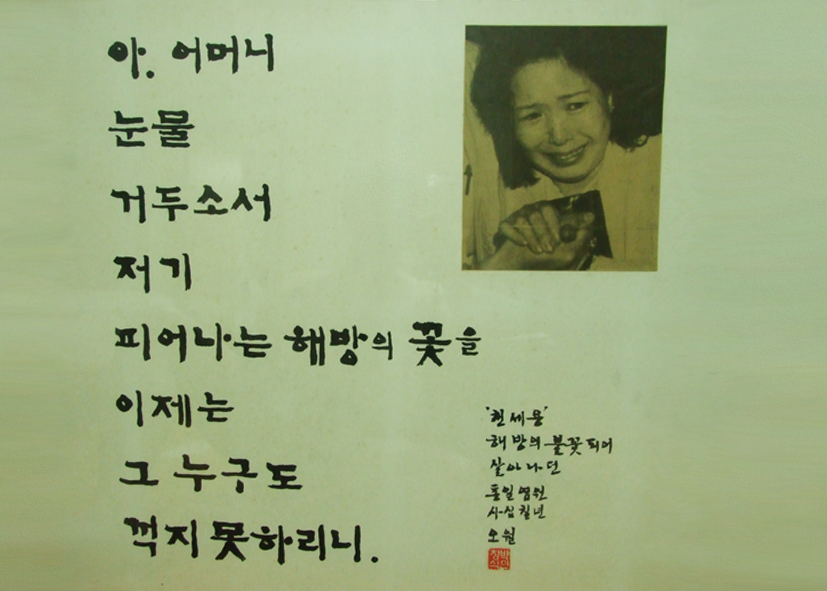 아. 어머니
눈물
거두소서
저기
피어나는 해방의 꽃을
이제는
그 누구도
꺽지 못하리니.
해방의 불꽃 피어
살아나던
통일염원
사십칠년
오월